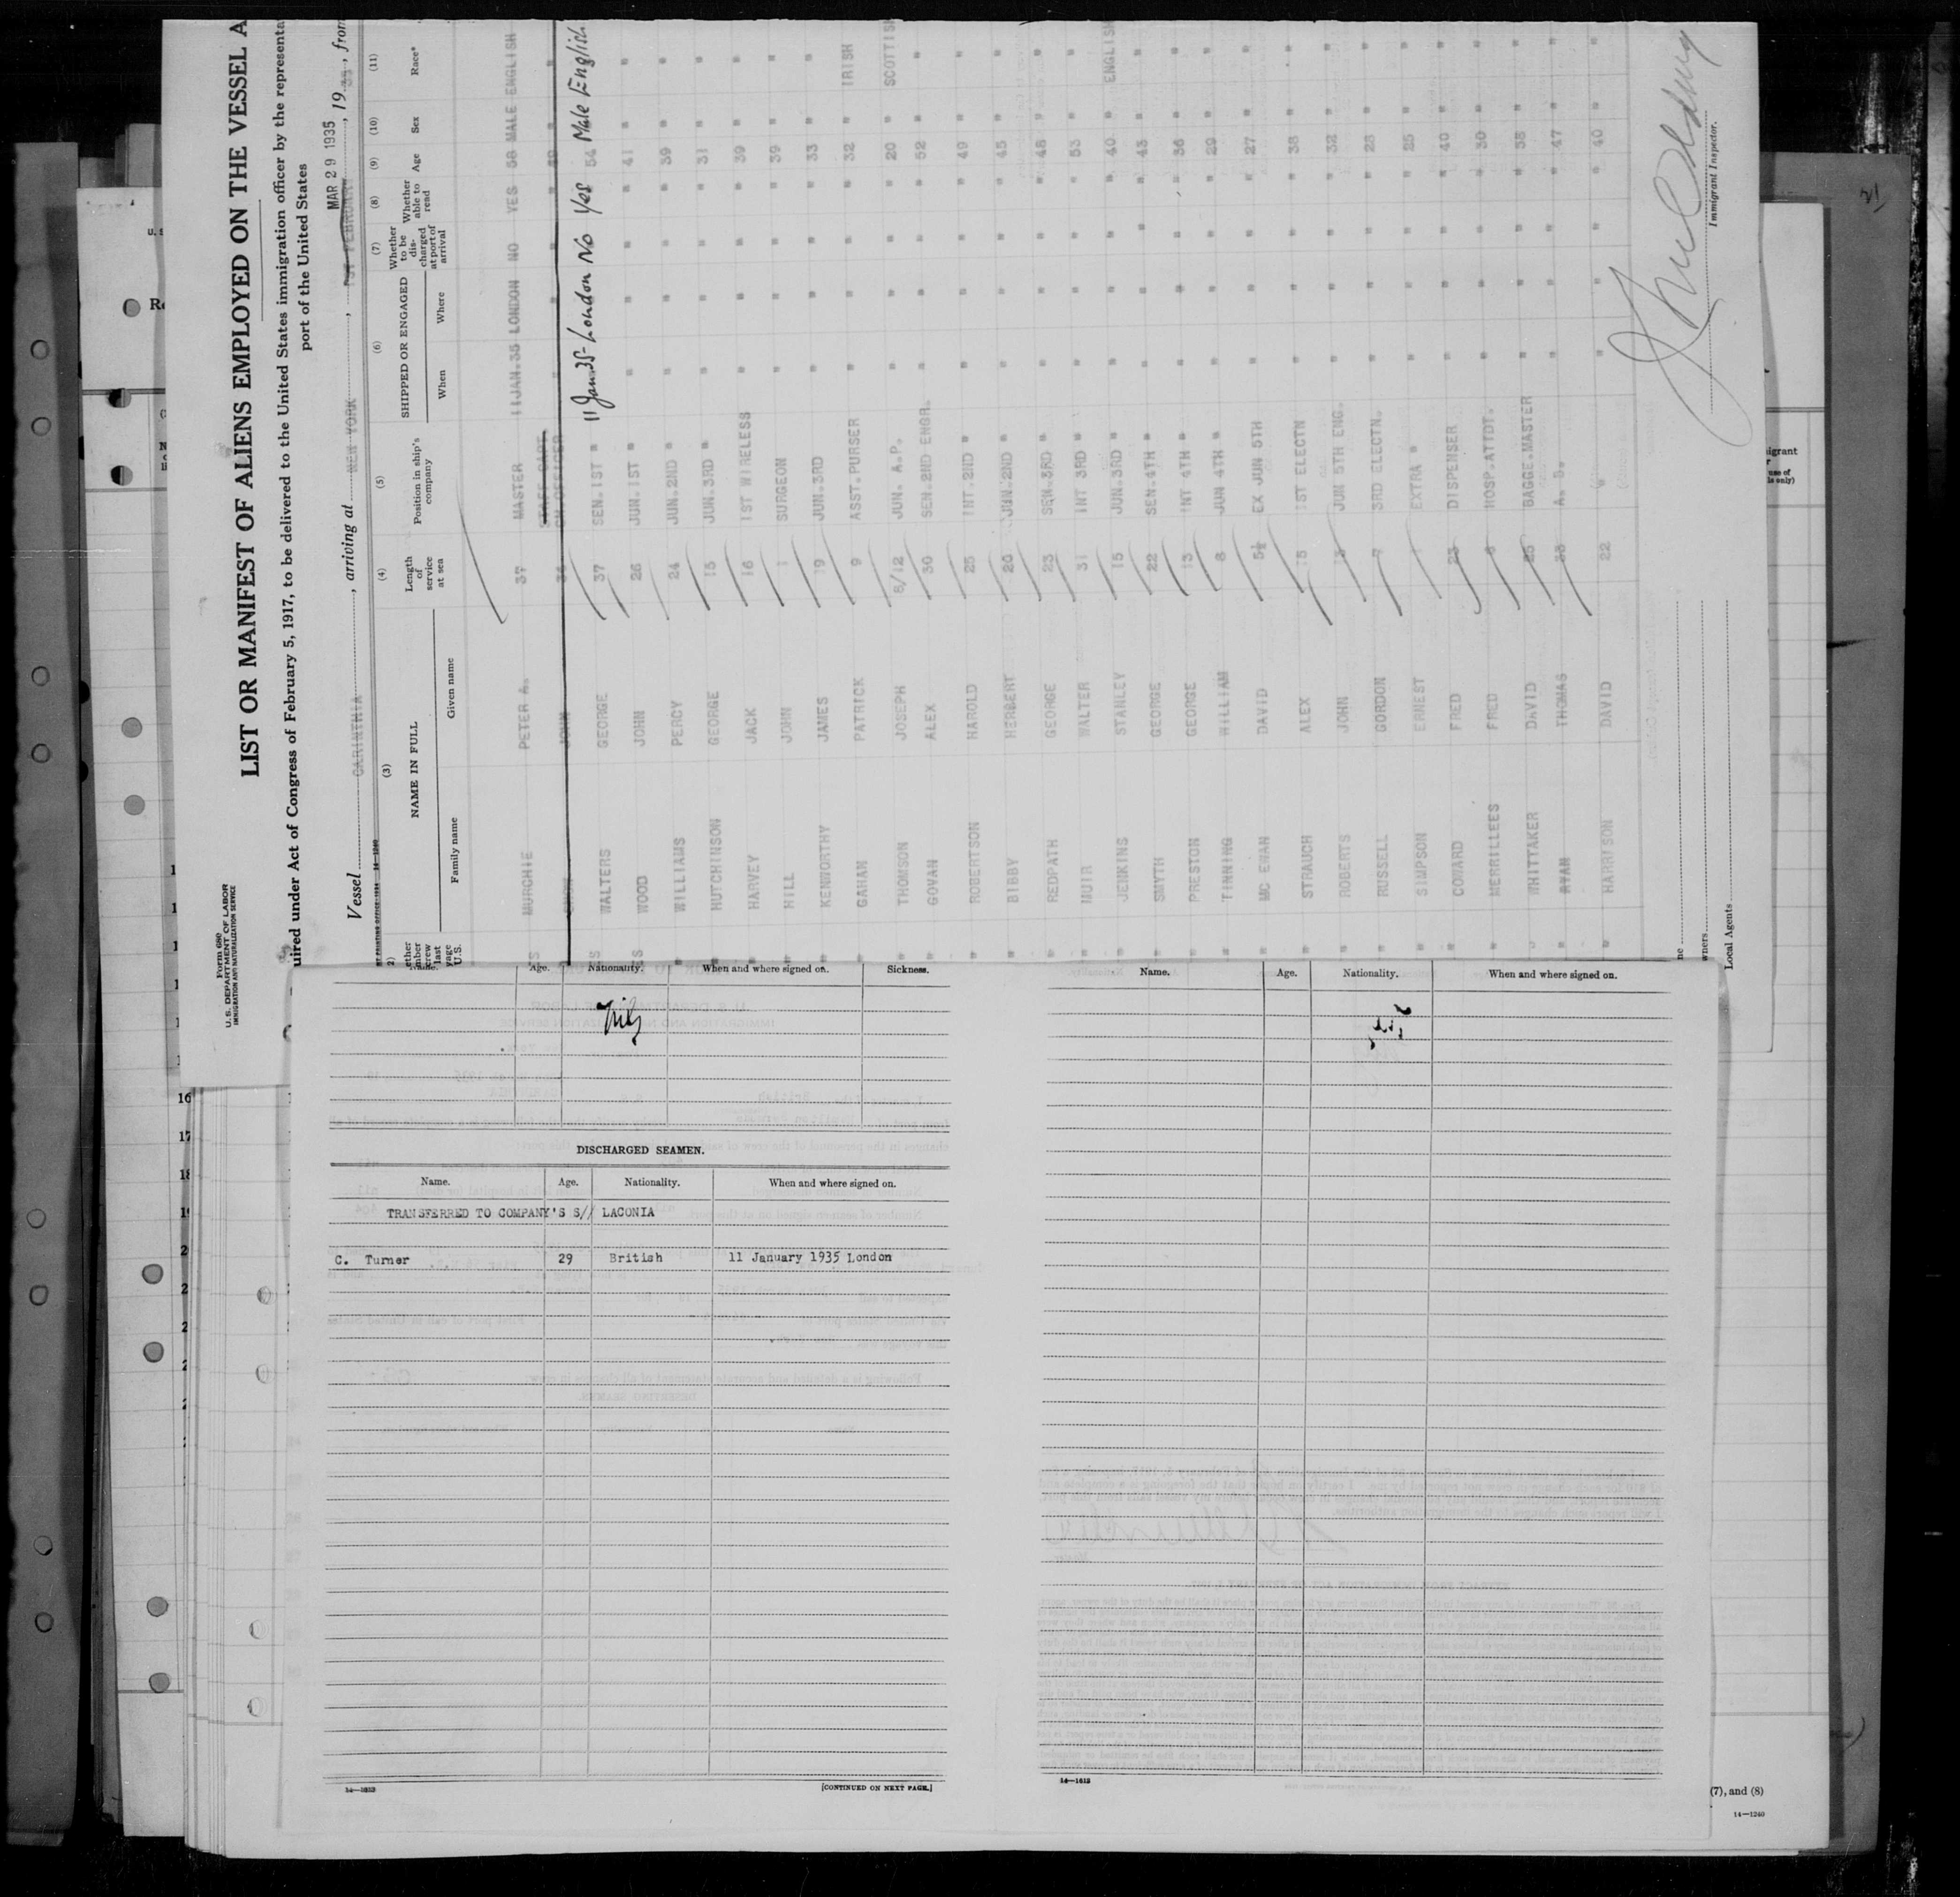 Form 680
U. S. DEPARTMENT OF LABOR
IMMIGRATION AND NATURALIZATION SERVICE
LIST OR MANIFEST OF ALIENS EMPLOYED ON THE VESSEL A
uired under Act of Congress of February 5, 1917, to be delivered to the United States immigration officer by the representa
port of the United States
MAR 29 1935
Vessel CARINTHIA, arriving at NEW YORK, 1ST FEBRUARY, 19 35, from
(3) (4) (5) (6) (7) (8) (9) (10) (11)
NAME IN FULL
Family name Given name
Length of service at sea
Position in ship's company
SHIPPED OR ENGAGED
When Where
Whether to be discharged at port of arrival
Whether able to read
Age
Sex
Race*
MURCHIE PETER A. 37 MASTER 11JAN.35 LONDON NO YES 58 MALE ENGLISH
JOHN 36 STAFF CAPT.
CH.OFFICER
11 Jan 35 London No Yes 54 Male English
WALTERS GEORGE 37 SEN.1ST "
WOOD JOHN 26 JUN.1ST " " " " " 41 " "
WILLIAMS PERCY 24 JUN.2ND " " " " " 39 " "
HUTCHINSON GEORGE 15 JUN.3RD " " " " " 31 " "
HARVEY JACK 16 1ST WIRELESS " " " " 39 " "
HILL JOHN 1 SURGEON " " " " 39 " "
KENWORTHY JAMES 19 JUN.3RD " " " " 33 " "
GAHAN PATRICK 9 ASST.PURSER " " " " 32 " IRISH
THOMSON JOSEPH 8/12 JUN. A.P. " " " " 20 " SCOTTISH
GOVAN ALEX 30 SEN.2ND ENGR. " " " " 52 " "
ROBERTSON HAROLD 25 INT.2ND " " " " " 49 " "
BIBBY HERBERT 20 JUN.2ND " " " " " 45 " "
REDPATH GEORGE 23 SEN.3RD " " " " " 48 " "
MUIR WALTER 31 INT 3RD " " " " " 53 " "
JENKINS STANLEY 15 JUN.3RD " " " " " 40 " ENGLISH
SMYTH GEORGE 22 SEN.4TH " " " " " 43 " "
PRESTON GEORGE 13 INT 4TH " " " " " 36 " "
TINNING WILLIAM 8 JUN 4TH " " " " " 29 " "
MC EWAN DAVID 5½ EX JUN 5TH " " " " 27 " "
STRAUCH ALEX 15 1ST ELECTN " " " " 38 " "
ROBERTS JOHN 13 JUN 5TH ENG. " " " " 32 " "
RUSSELL GORDON 7 3RD ELECTN. " " " " 23 " "
SIMPSON ERNEST 1 EXTRA " " " " " 25 " "
COWARD FRED 23 DISPENSER " " " " 40 " "
MERRILLEES FRED HOSP.ATTDT. " " " " 30 " "
WHITTAKER DAVID 25 BAGGE.MASTER " " " " "
RYAN THOMAS 33 A. B. " " " " 47 " "
HARRISON DAVID 22 " " " " 40 " "
Immigrant Inspector.
Local Agents
Name. Age. Nationality. When and where signed on. Sickness.
DISCHARGED SEAMEN.
Name. Age. Nationality. When and where signed on.
TRANSFERRED TO COMPANY'S S// LACONIA
C. Turner 29 British 11 January 1935 London
[CONTINUED ON NEXT PAGE.]
Name. Age. Nationality. When and where signed on.
14—1613
16
17
18
(7), and (8)
14—1240